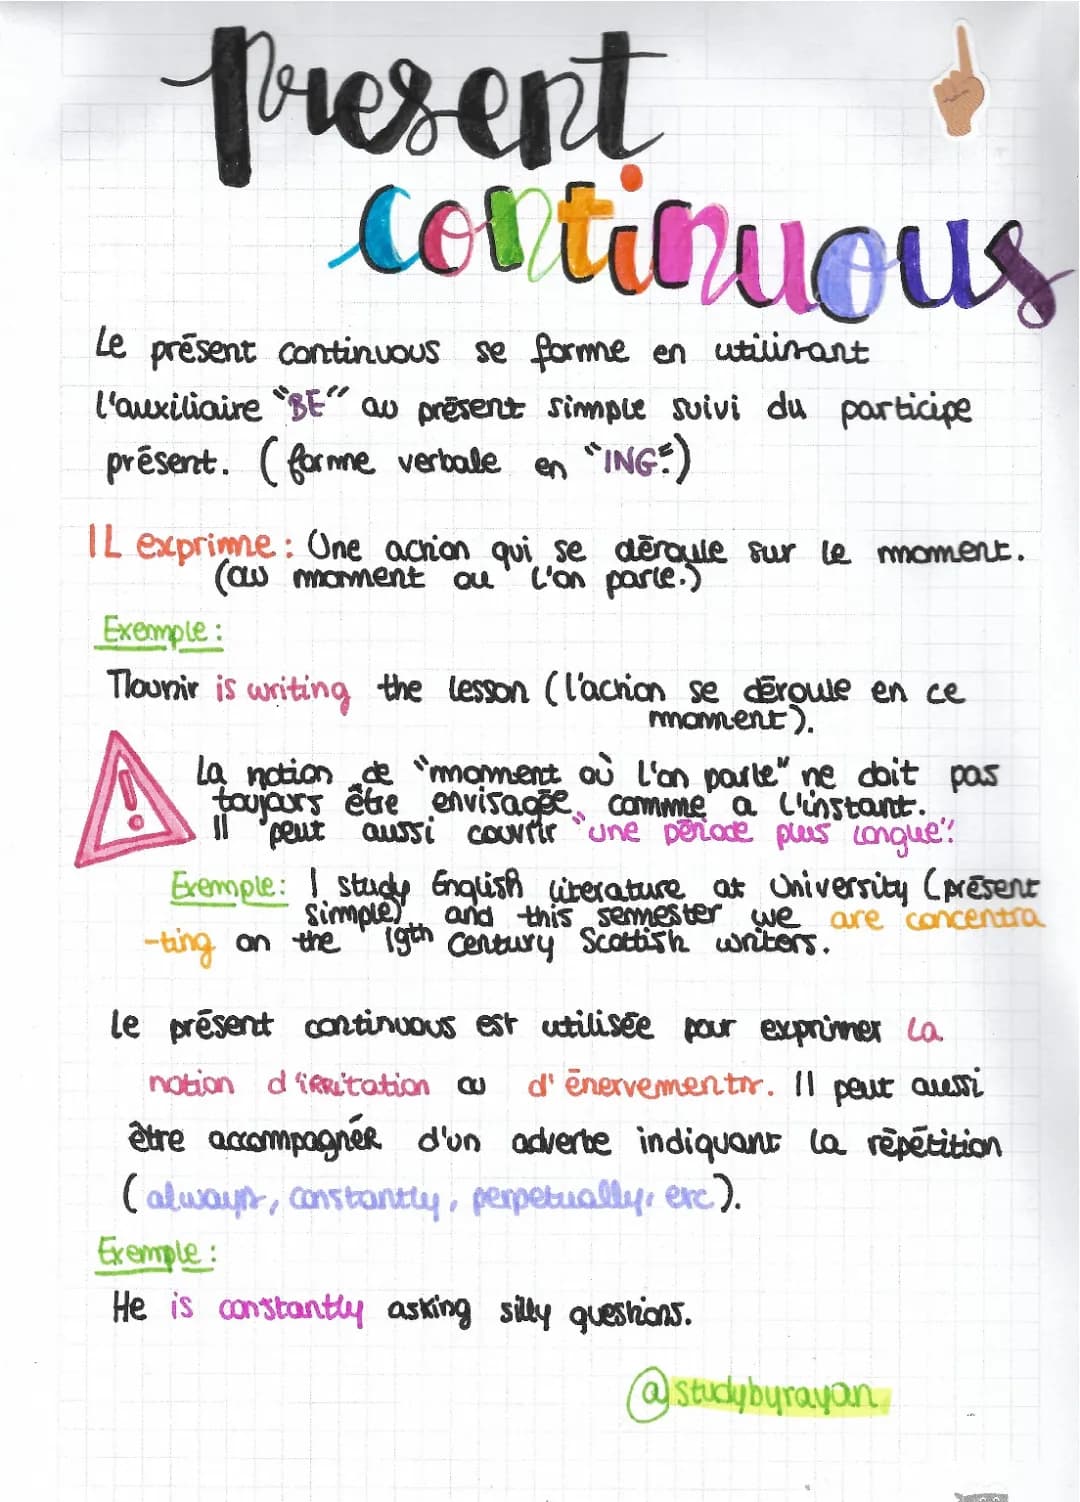 Present
continuous
Le présent continuous se forme en utilisant
l'auxiliaire "BE" au présent simple suivi du participe
présent. (forme verbale en "ING".)
IL exprime : Une action qui se déroule sur le moment.
(au moment ou l'on parle.)
Exemple :
Mounir is writing the lesson (l'action se déroule en ce
moment).
La notion de "moment où l'on parle" ne doit pas
toujours être envisagée comme a l'instant.
Il peut aussi couvrir "une période plus longue".
Exemple : I study English literature at University (présent
simple), and this semester we are concentra
-ting on the 19th Century Scottish writers.
Le présent continuous est utilisée pour exprimer la
notion d'irritation ou d'énervementr. Il peut aussi
être accompagnér d'un adverbe indiquant la répétition
(always, constantly, perpetually, etc).
Exemple :
He is constantly asking silly questions.
@studybyrayan